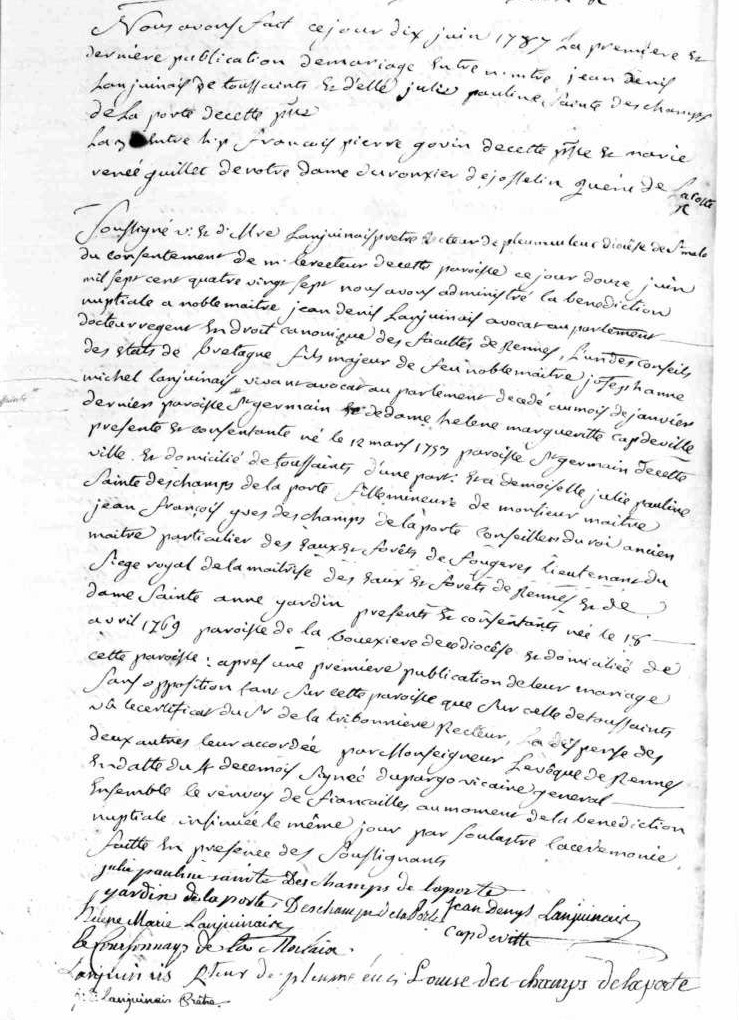 Nous avons fait ce jour dix juin 1787 la premiere et
derniere publication de mariage entre n. mtre jean denis
Lanjuinais de toussaints et d'elle julie pauline Sainte deschamps
de la porte de cette psse
La entre h.p francois pierre govin de cette psse et marie
renée guillet de notre dame du ronxier de josselin quéré de la cotte
Soussigné v. et d. Mre Lanjuinais pretre Recteur de pleumeleuc diocèse de St malo
du consentement de m. le recteur de cette paroisse ce jour douze juin
mil sept cent quatre vingt sept nous avons administré la benediction
nuptiale a noble maitre jean denis Lanjuinais avocat au parlement
docteur regent en droit canonique des facultés de Rennes, l'un des conseils
des Etats de bretagne fils majeur de feu noble maitre joseph anne
michel lanjuinais vivant avocat au parlement decedé au mois de janvier
dernier paroisse St germain et de dame helene margueritte capdeville
presente et consentante né le 12 mars 1753 paroisse St germain de cette
ville et domicilié de toussaints d'une part: et a demoiselle julie pauline
Sainte deschamps de la porte fille mineure de monsieur maitre
jean françois yves deschamps de la porte conseiller du roi ancien
maitre particulier des eaux et forêts de fougeres lieutenant du
Siege royal de la maitrise des eaux et forêts de Rennes et de
dame Sainte anne yardin presents et consentants née le 18
avril 1769 paroisse de la bouexiere de ce diocèse et domiciliée de
cette paroisse: apres une premiere publication de leur mariage
Sans opposition tant sur cette paroisse que sur celle de toussaints
vû le certificat du Sr de la tribonniere Recteur, la dispense des
deux autres leur accordée par Monseigneur L'evêque de Rennes
en datte du 4 de ce mois signée duparge vicaire general
Ensemble le renvoy de fiancailles au moment de la benediction
nuptiale insinuée le même jour par foulastre la ceremonie
faitte en presence des Soussignants
julie pauline sainte Deschamps de laporte
yardin de la porte Deschamps de la porte Jean Denys Lanjuinais
Marie Lanjuinais capdeville
de la
Lanjuinais Rteur de pleumeleuc Louise des champs de laporte
lanjuinais Prêtre